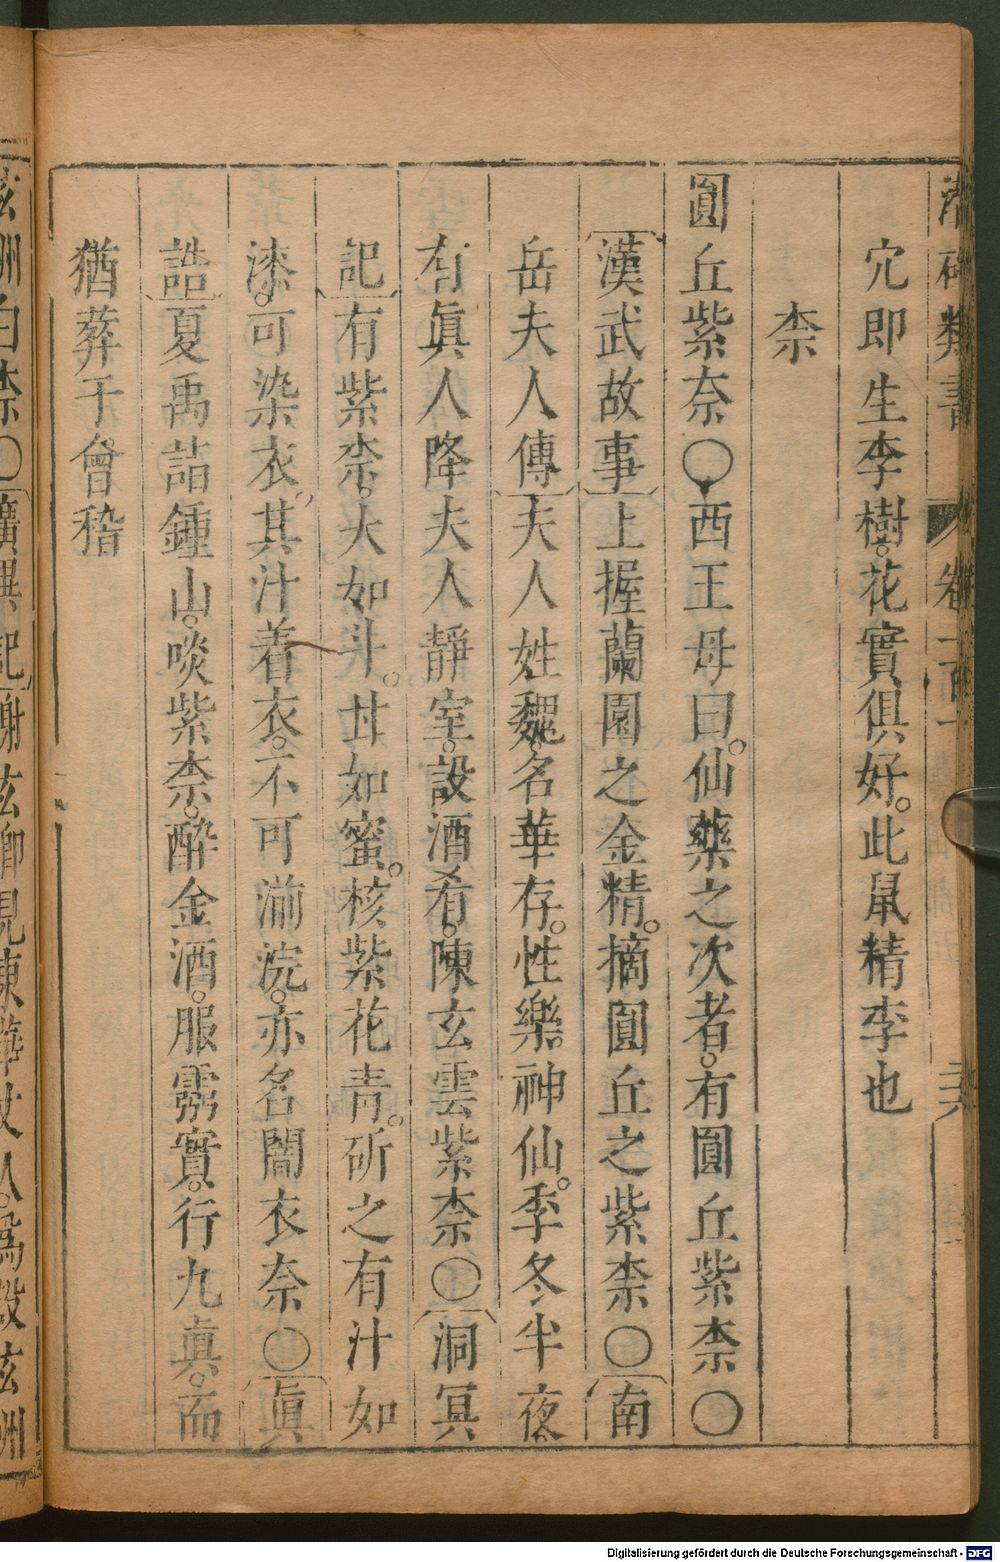 穴即生李樹。花實俱好。此鼠精李也
柰
圓丘紫奈○西王母曰。仙藥之次者。有圓丘紫柰○
漢武故事上握蘭園之金精。摘圓丘之紫柰○南
岳夫人傳夫人姓魏。名華存。性樂神仙。季冬半夜
有眞人降夫人靜室。設酒肴。陳玄雲紫柰○洞冥
記有紫柰。大如斗。甘如蜜。核紫花青。斫之有汁如
漆。可染衣。其汁着衣。不可湔浣。亦名闇衣奈○眞
誥夏禹詣鍾山。啖紫柰。醉金酒。服靈寶。行九眞。而
猶葬于會稽
玄洲白柰○廣異記謝玄卿見東華丈人。爲設玄洲
類書 卷一百一 二六
Digitalisierung gefördert durch die Deutsche Forschungsgemeinschaft - DFG